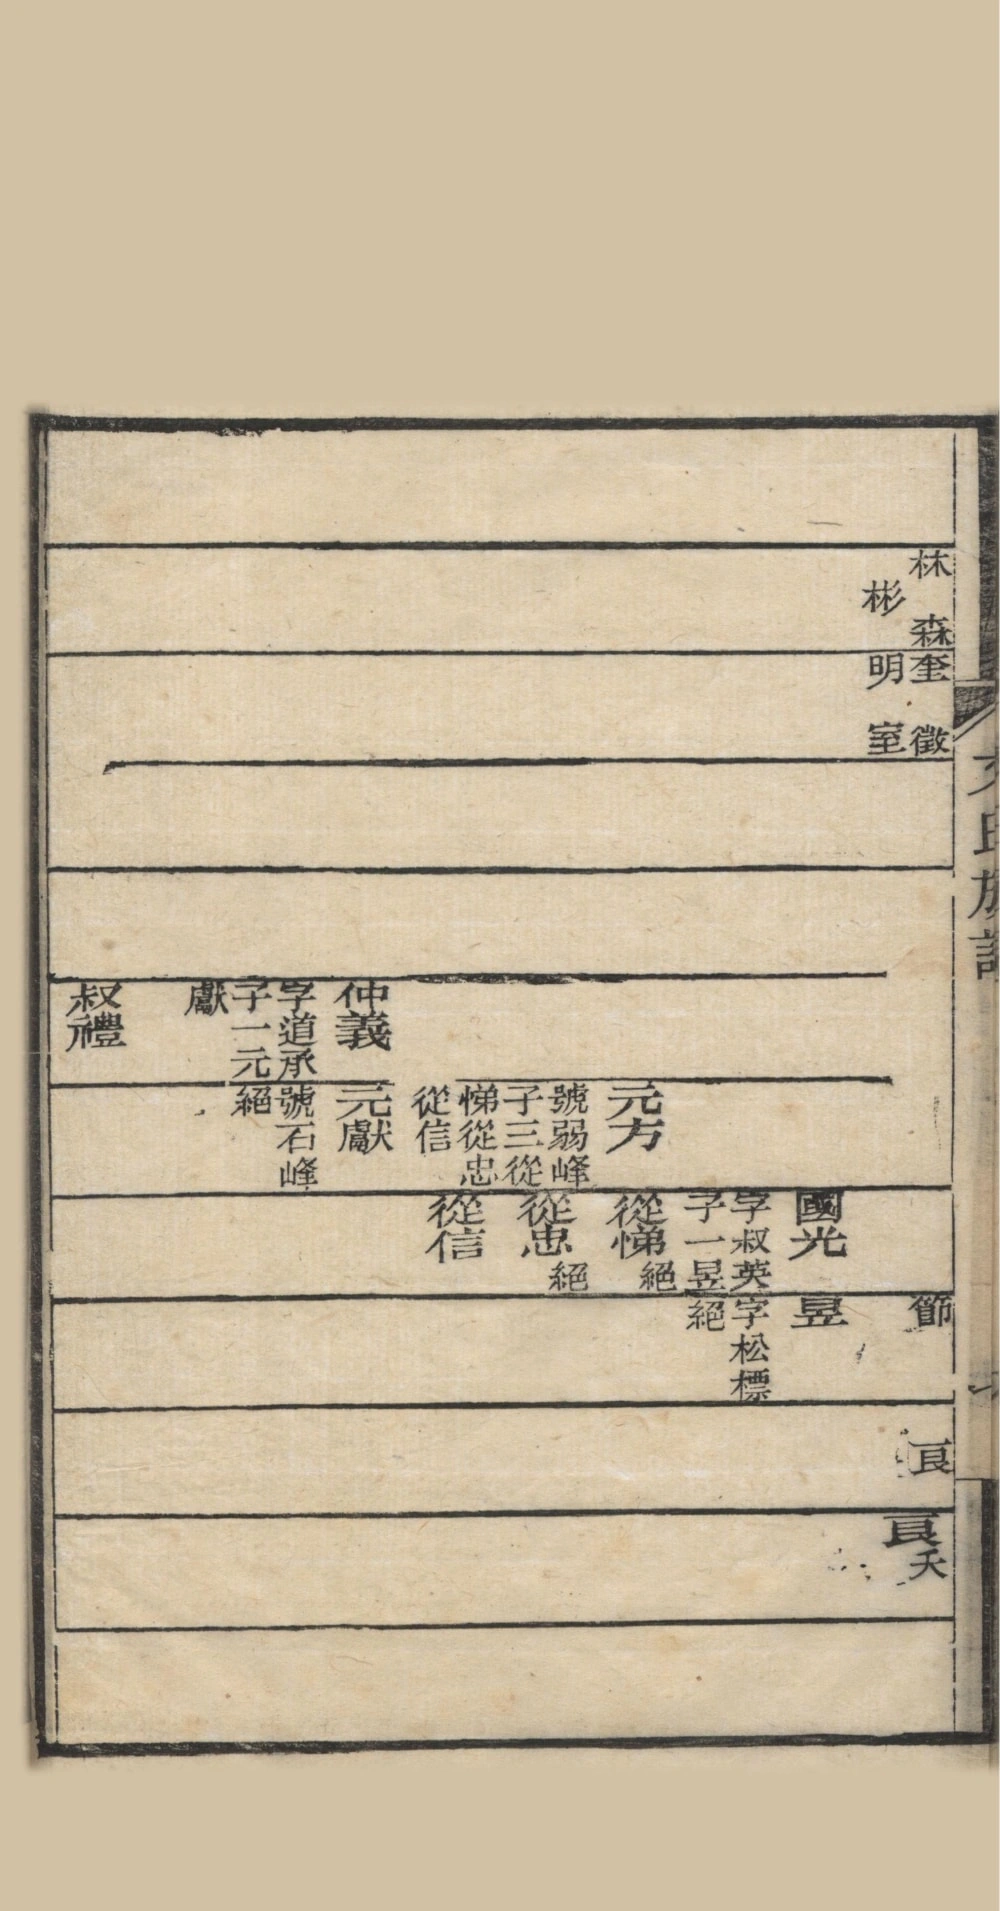 林森
彬
奎徵
明室
節
艮
艮夭
國光
字叔英
子一昱
昱
字松標
絕
元方
號弱峰
子三從
悌從忠
從信
從悌絕
從忠絕
從信
仲義
字道承
子一元
獻
元獻
號石峰
絕
叔禮
氏族譜